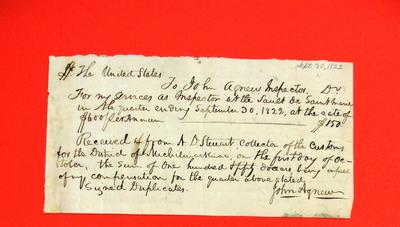 Sept. 30, 1822
The United States
To John Agnew Inspector, Dr
For my services as Inspector at the Sault de Sainte Marie
in the quarter ending September 30, 1822, at the rate of
$600 per Annum $150
Received of from A. D. Steuart, Collector of the Customs
for the District of Michilimackinac, on the first day of Oc-
tober, the sum of One hundred & fifty dollars being in full
of my compensation for the quarter above stated.
Signed Duplicates. John Agnew